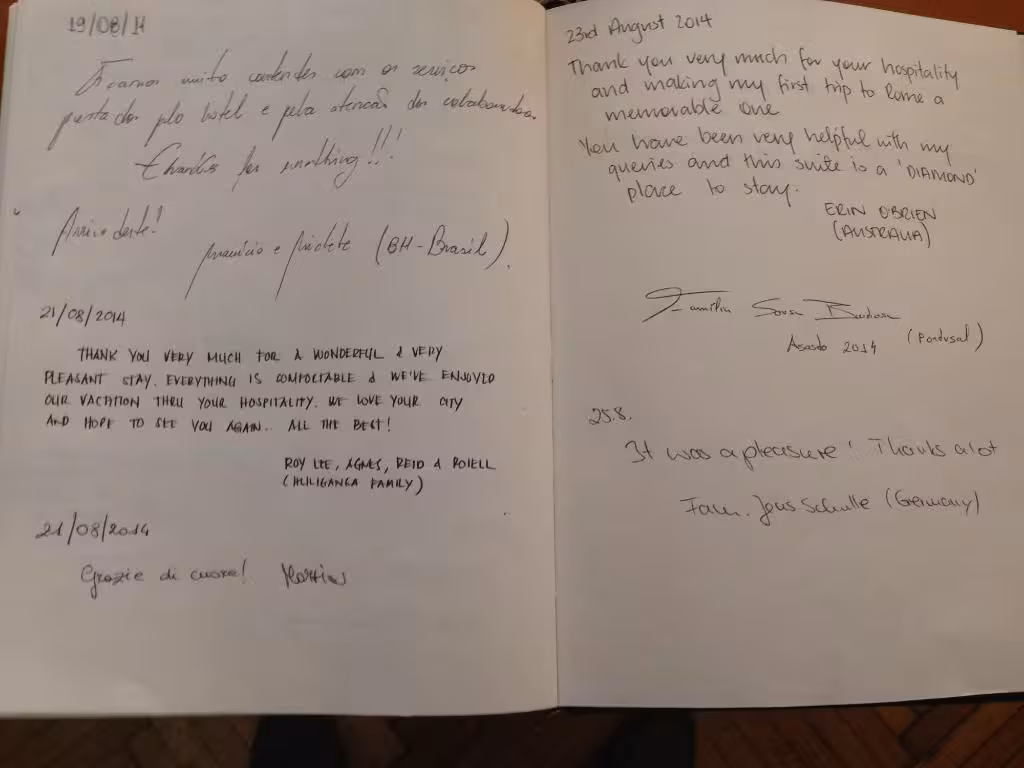 19/08/14
Ficamos muito contentes com os serviços
prestados plo hotel e pela atencão dos colaboradores.
Thanks for everything!!!
Arrivederte!
Maurício e (BH-Brasil).
21/08/2014
THANK YOU VERY MUCH FOR A WONDERFUL & VERY
PLEASANT STAY. EVERYTHING IS COMFORTABLE & WE'VE ENJOYED
OUR VACATION THRU YOUR HOSPITALITY. WE LOVE YOUR CITY
AND HOPE TO SEE YOU AGAIN.. ALL THE BEST!
ROY LEE, AGNES, REID &
FAMILY)
21/08/2014
Grazie di cuore!
23rd August 2014
Thank you very much for your hospitality
and making my first trip to Rome a
memorable one
You have been very helpful with my
queries and this suite is a 'DIAMOND'
place to stay.
ERIN O'BRIEN
(AUSTRALIA)
Família Sousa Barbosa
Agosto 2014 (Portugal)
25.8.
It was a pleasure! Thanks a lot
Fam. Jens Schulle (Germany)